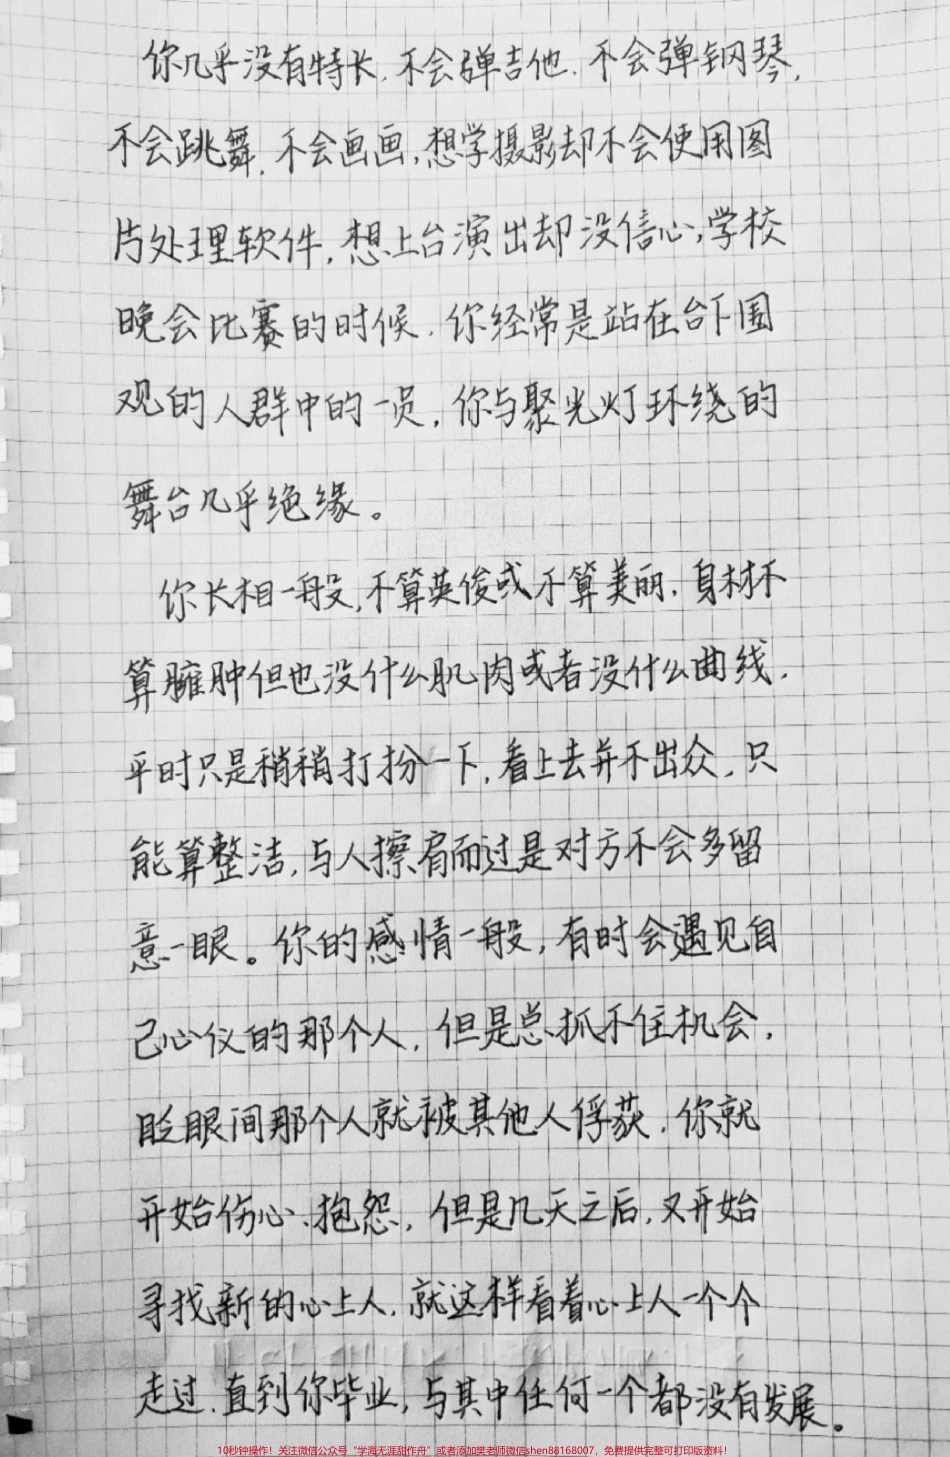 你几乎没有特长.不会弹吉他.不会弹钢琴,
不会跳舞,不会画画,想学摄影却不会使用图
片处理软件,想上台演出却没信心,学校
晚会比赛的时候.你经常是站在台下围
观的人群中的一员,你与聚光灯环绕的
舞台几乎绝缘。
你长相一般,不算英俊或不算美丽.身材不
算臃肿但也没什么肌肉或者没什么曲线.
平时只是稍稍打扮一下,看上去并不出众,只
能算整洁,与人擦肩而过是对方不会多留
意一眼。你的感情一般,有时会遇见自
己心仪的那个人,但是总抓不住机会,
眨眼间那个人就被其他人俘获.你就
开始伤心、抱怨,但是几天之后,又开始
寻找新的心上人.就这样看着心上人一个个
走过.直到你毕业,与其中任何一个都没有发展。
10秒钟操作！关注微信公众号“学海无涯甜作舟”或者添加樊老师微信shen88168007，免费提供完整可打印版资料！